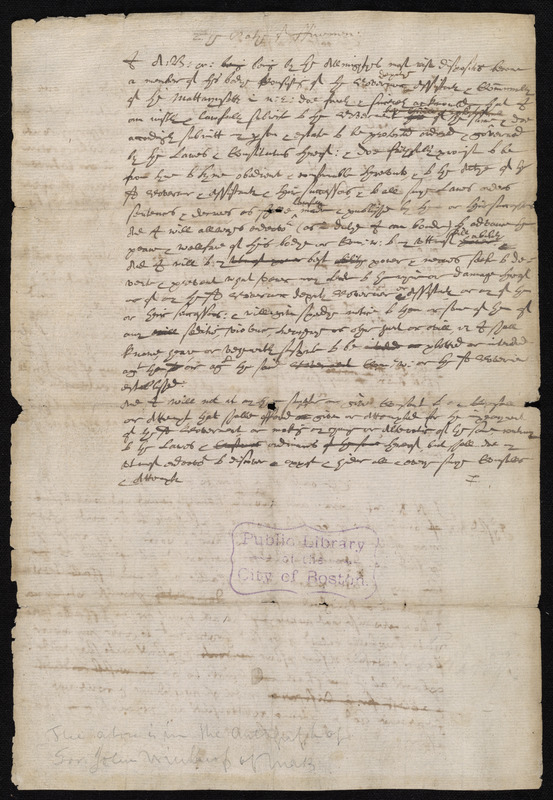 The Oath of a Freeman.
I A: B: &c: being by the Allmightys most wise disposition become
a member of this body consisting of the Governor deputy Assistants & Commonalty
of the Mattachusetts in N: E: doe freely & sincerely acknowledge that I
am iustly & lawfully subiect to the Government of the same & doe
accordingly submitt my person & estate to be protected ordered & governed
by the Lawes & Constitutions thereof: & doe faithfully promise to be
from time to tyme obedient & conformable thereunto & to the Authority of the
sd Governor & Assistants & their successors & to all such Lawes orders
sentences & decrees as shalbe lawfully made & published by them or their successors
And I will allwayes endeavor (as in duty I am bound) to advance the
peace & wellfare of this bodye or Commonwealth to my utmost skill & ability
And I will to my best power & meanes seeke to de-
verte & prevent whatsoever may tend to the ruine or damage thereof
or of any the sd Governor deputy Governor or Assistants or any of them
or their successors: & will give speedy notice to them or some of them of
any sedition violence treachery or other hurt or evill which I shall
knowe heare or vehemently suspecte to be plotted or intended
against them or against the said Commonwealth or the sd Government
established:
And I will not at any time suffer or give consent to any Counsell
or Attempt that shalbe offered given or attempted for the impeachment
of the sd Government or makinge any change or Alteration of the same contrary
to the Lawes & ordinances thereof, but shall doe my
utmost endeavor to discover oppose & hinder all & every such Counsells
& Attempts
Public Library
of the
City of Boston.
The above is in the Autograph of
Gov. John Winthrop of Mass